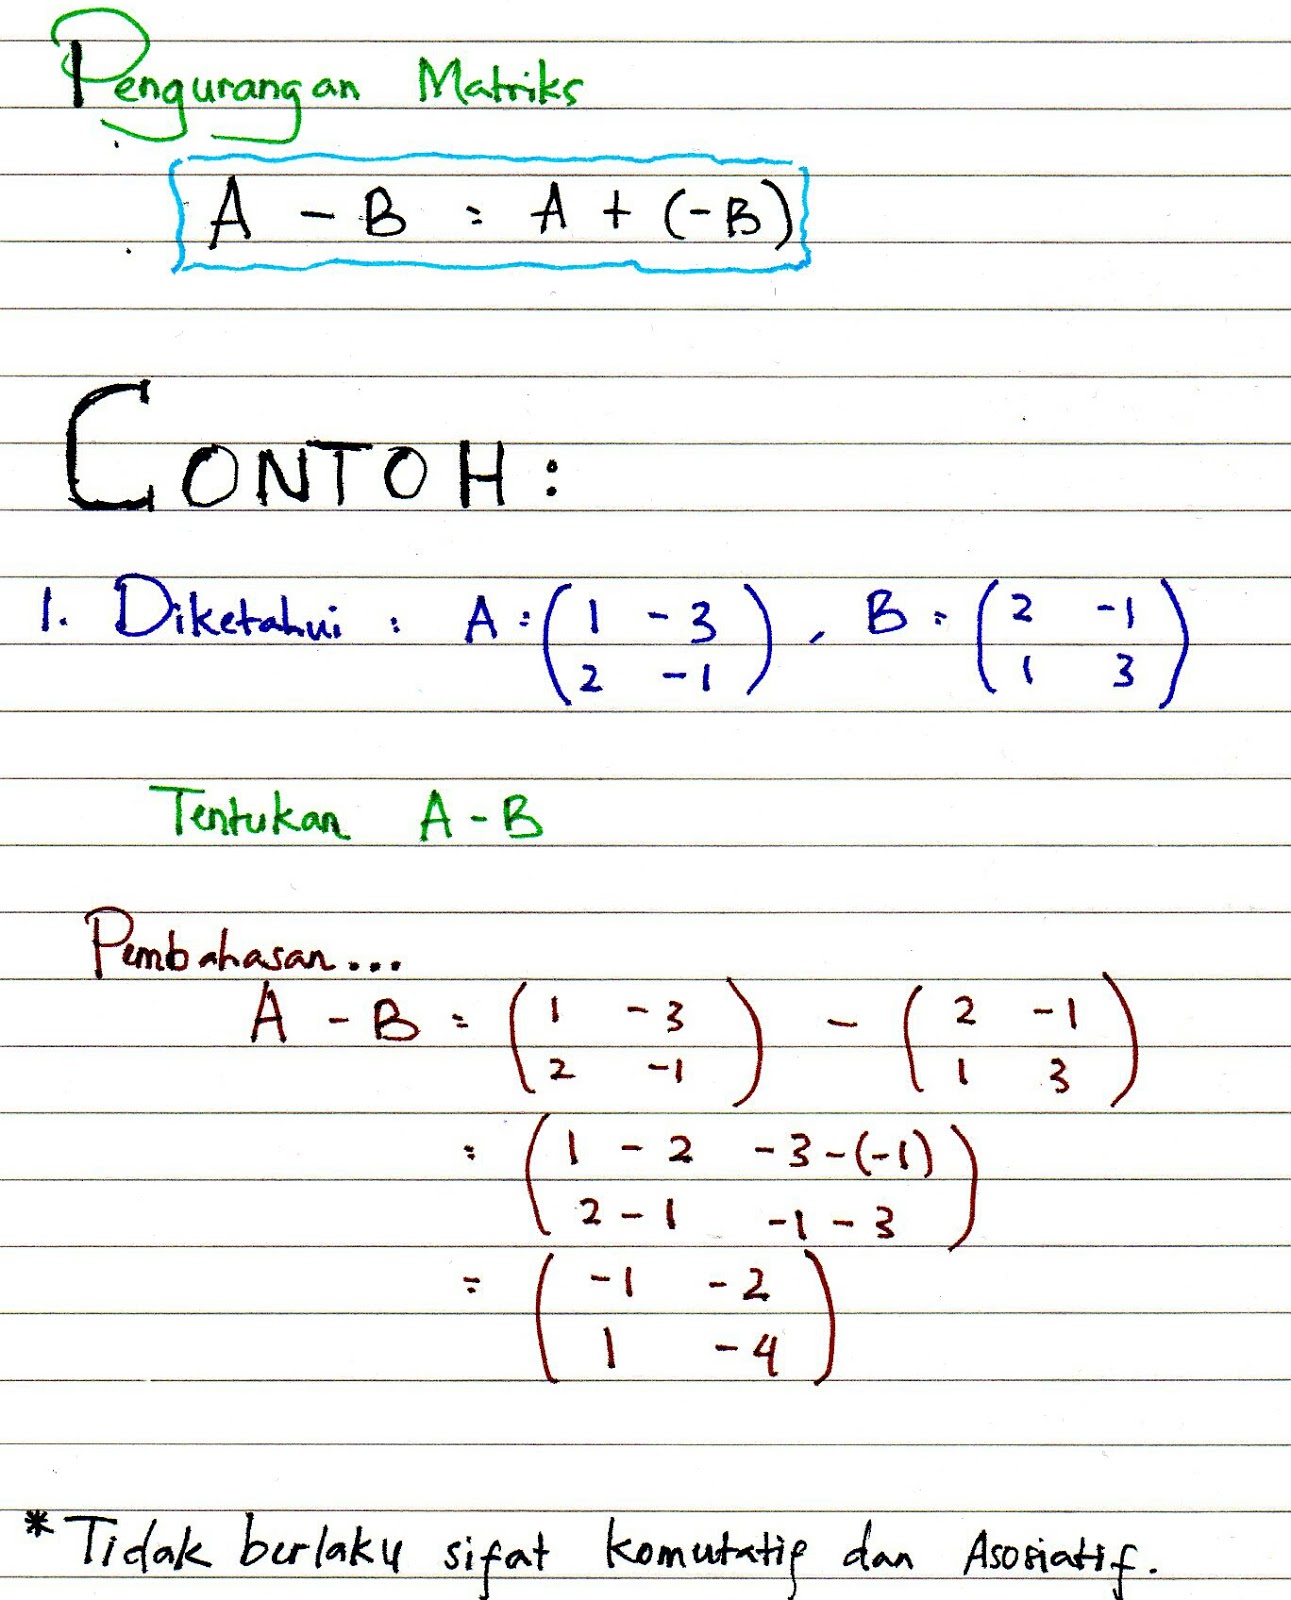 Pengurangan Matriks
A - B = A + (-B)
CONTOH :
1. Diketahui : A = ( 1 -3 ) , B = ( 2 -1 )
( 2 -1 ) ( 1 3 )
Tentukan A - B
Pembahasan...
A - B = ( 1 -3 ) - ( 2 -1 )
( 2 -1 ) ( 1 3 )
= ( 1 - 2 -3-(-1) )
( 2 - 1 -1 - 3 )
= ( -1 -2 )
( 1 -4 )
* Tidak berlaku sifat komutatif dan Asosiatif.